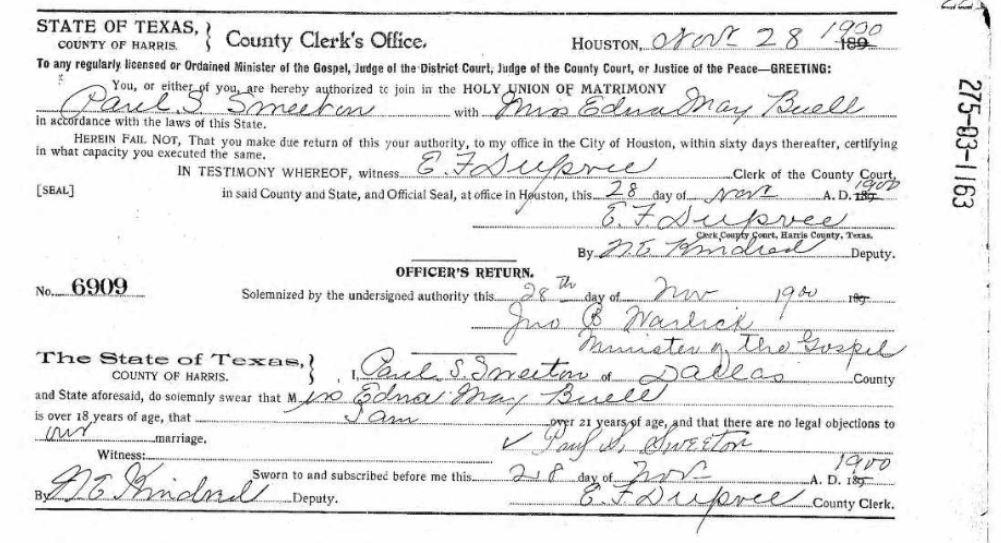 STATE OF TEXAS, } County Clerk's Office. HOUSTON, Nov 28 1900 189
COUNTY OF HARRIS.
To any regularly licensed or Ordained Minister of the Gospel, Judge of the District Court, Judge of the County Court, or Justice of the Peace—GREETING:
You, or either of you, are hereby authorized to join in the HOLY UNION OF MATRIMONY
Paul S. Sweeton with Miss Edna May Buell
in accordance with the laws of this State.
HEREIN FAIL NOT, That you make due return of this your authority, to my office in the City of Houston, within sixty days thereafter, certifying
in what capacity you executed the same.
IN TESTIMONY WHEREOF, witness E. F. Dupree Clerk of the County Court,
[SEAL] in said County and State, and Official Seal, at office in Houston, this 28 day of Nov A. D. 1900 189
E. F. Dupree
Clerk County Court, Harris County, Texas.
By N E Kindred Deputy.
OFFICER'S RETURN.
No. 6909 Solemnized by the undersigned authority this 28th day of Nov 1900 189
Jno B Warlick
Minister of the Gospel
The State of Texas, }
COUNTY OF HARRIS. I, Paul S. Sweeton of Dallas County
and State aforesaid, do solemnly swear that Miss Edna May Buell
is over 18 years of age, that I am over 21 years of age, and that there are no legal objections to
our marriage. ✓ Paul S. Sweeton
Witness:
Sworn to and subscribed before me this 28 day of Nov A. D. 1900 189
By N E Kindred Deputy. E. F. Dupree County Clerk.
275-03-1163